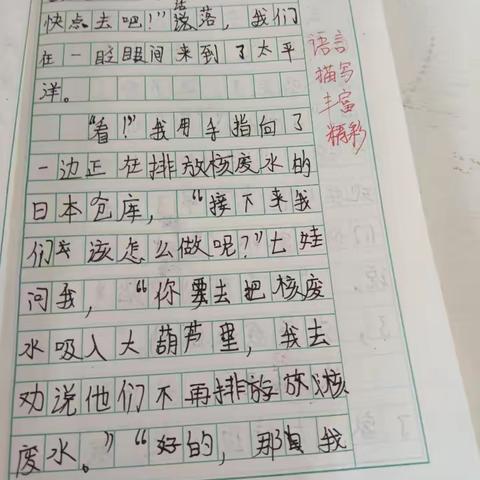 快点去吧！”话落，我们
在一眨眼间来到了太平
洋。
“看！”我用手指向了
一边正在排放核废水的
日本仓库，“接下来我
们该怎么做呢？”七娃
问我，“你要去把核废
水吸入大葫芦里，我去
劝说他们不再排放放核
废水。”“好的，那我
语言
描写
丰富
精彩